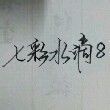 七彩水滴8